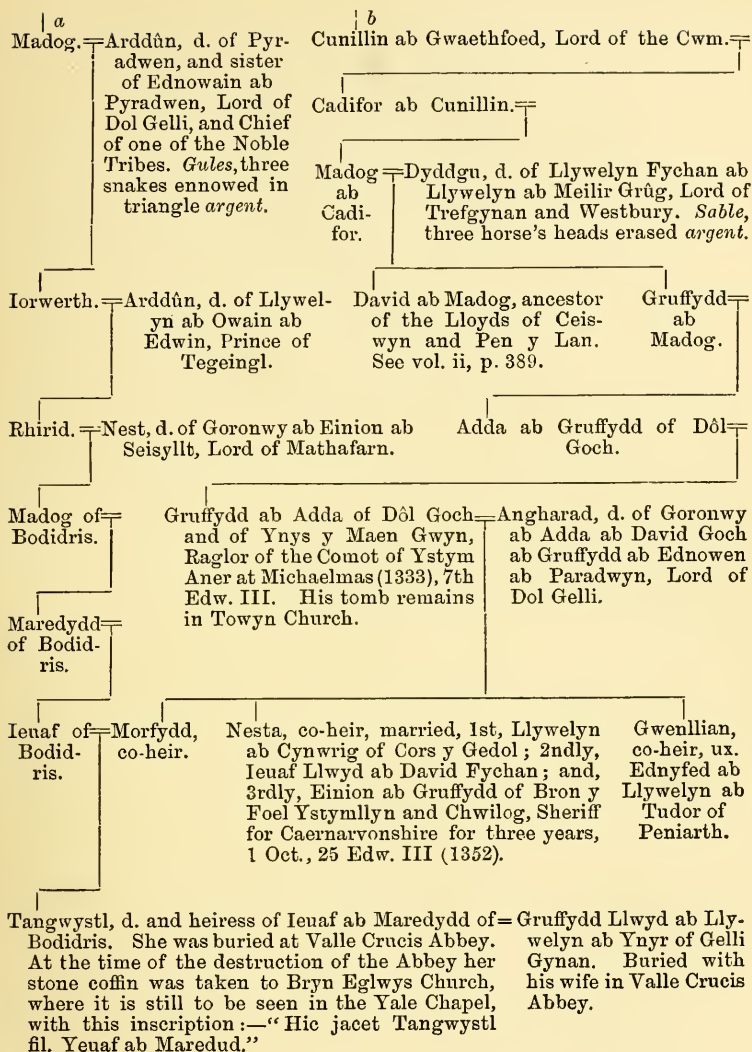 a
b
Madog.
Arddûn, d. of Pyr-
adwen, and sister
of Ednowain ab
Pyradwen, Lord of
Dol Gelli, and Chief
of one of the Noble
Tribes. Gules, three
snakes ennowed in
triangle argent.
Cunillin ab Gwaethfoed, Lord of the Cwm.
Cadifor ab Cunillin.
Madog
ab
Cadi-
for.
Dyddgu, d. of Llywelyn Fychan ab
Llywelyn ab Meilir Grûg, Lord of
Trefgynan and Westbury. Sable,
three horse's heads erased argent.
Iorwerth.
Arddûn, d. of Llywel-
yn ab Owain ab
Edwin, Prince of
Tegeingl.
David ab Madog, ancestor
of the Lloyds of Ceis-
wyn and Pen y Lan.
See vol. ii, p. 389.
Gruffydd
ab
Madog.
Rhirid.
Nest, d. of Goronwy ab Einion ab
Seisyllt, Lord of Mathafarn.
Adda ab Gruffydd of Dôl
Goch.
Madog of
Bodidris.
Gruffydd ab Adda of Dôl Goch
and of Ynys y Maen Gwyn,
Raglor of the Comot of Ystym
Aner at Michaelmas (1333), 7th
Edw. III. His tomb remains
in Towyn Church.
Angharad, d. of Goronwy
ab Adda ab David Goch
ab Gruffydd ab Ednowen
ab Paradwyn, Lord of
Dol Gelli.
Maredydd
of Bodid-
ris.
Ieuaf of
Bodid-
ris.
Morfydd,
co-heir.
Nesta, co-heir, married, 1st, Llywelyn
ab Cynwrig of Cors y Gedol; 2ndly,
Ieuaf Llwyd ab David Fychan; and,
3rdly, Einion ab Gruffydd of Bron y
Foel Ystymllyn and Chwilog, Sheriff
for Caernarvonshire for three years,
1 Oct., 25 Edw. III (1352).
Gwenllian,
co-heir, ux.
Ednyfed ab
Llywelyn ab
Tudor of
Peniarth.
Tangwystl, d. and heiress of Ieuaf ab Maredydd of
Bodidris. She was buried at Valle Crucis Abbey.
At the time of the destruction of the Abbey her
stone coffin was taken to Bryn Eglwys Church,
where it is still to be seen in the Yale Chapel,
with this inscription:—"Hic jacet Tangwystl
fil. Yeuaf ab Maredud."
Gruffydd Llwyd ab Lly-
welyn ab Ynyr of Gelli
Gynan. Buried with
his wife in Valle Crucis
Abbey.